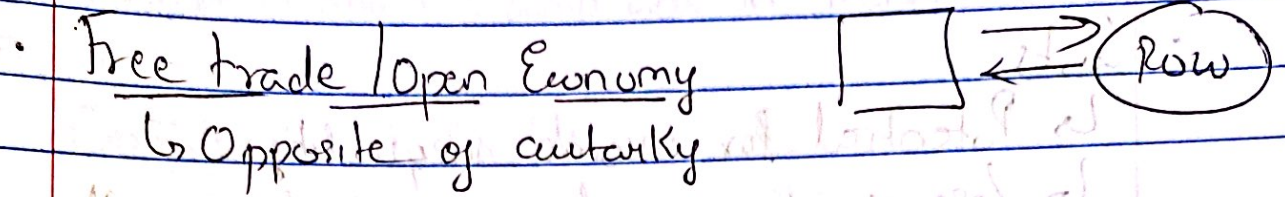 • Free trade / Open Economy ROW
↳ Opposite of autarky